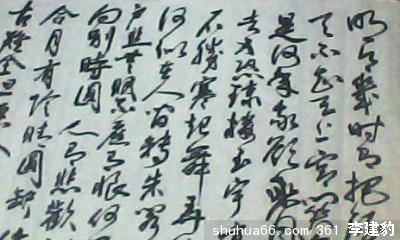 明月幾时有把
天不知天上宫闕
是何年我欲乘
去又恐琼楼玉宇
不勝寒起舞弄
何似在人间转朱阁
户照无眠不應有恨何
向别時圆 人有悲歡
合月有阴晴圆缺
古难全但愿人
shuhua66.com/361 李建豹